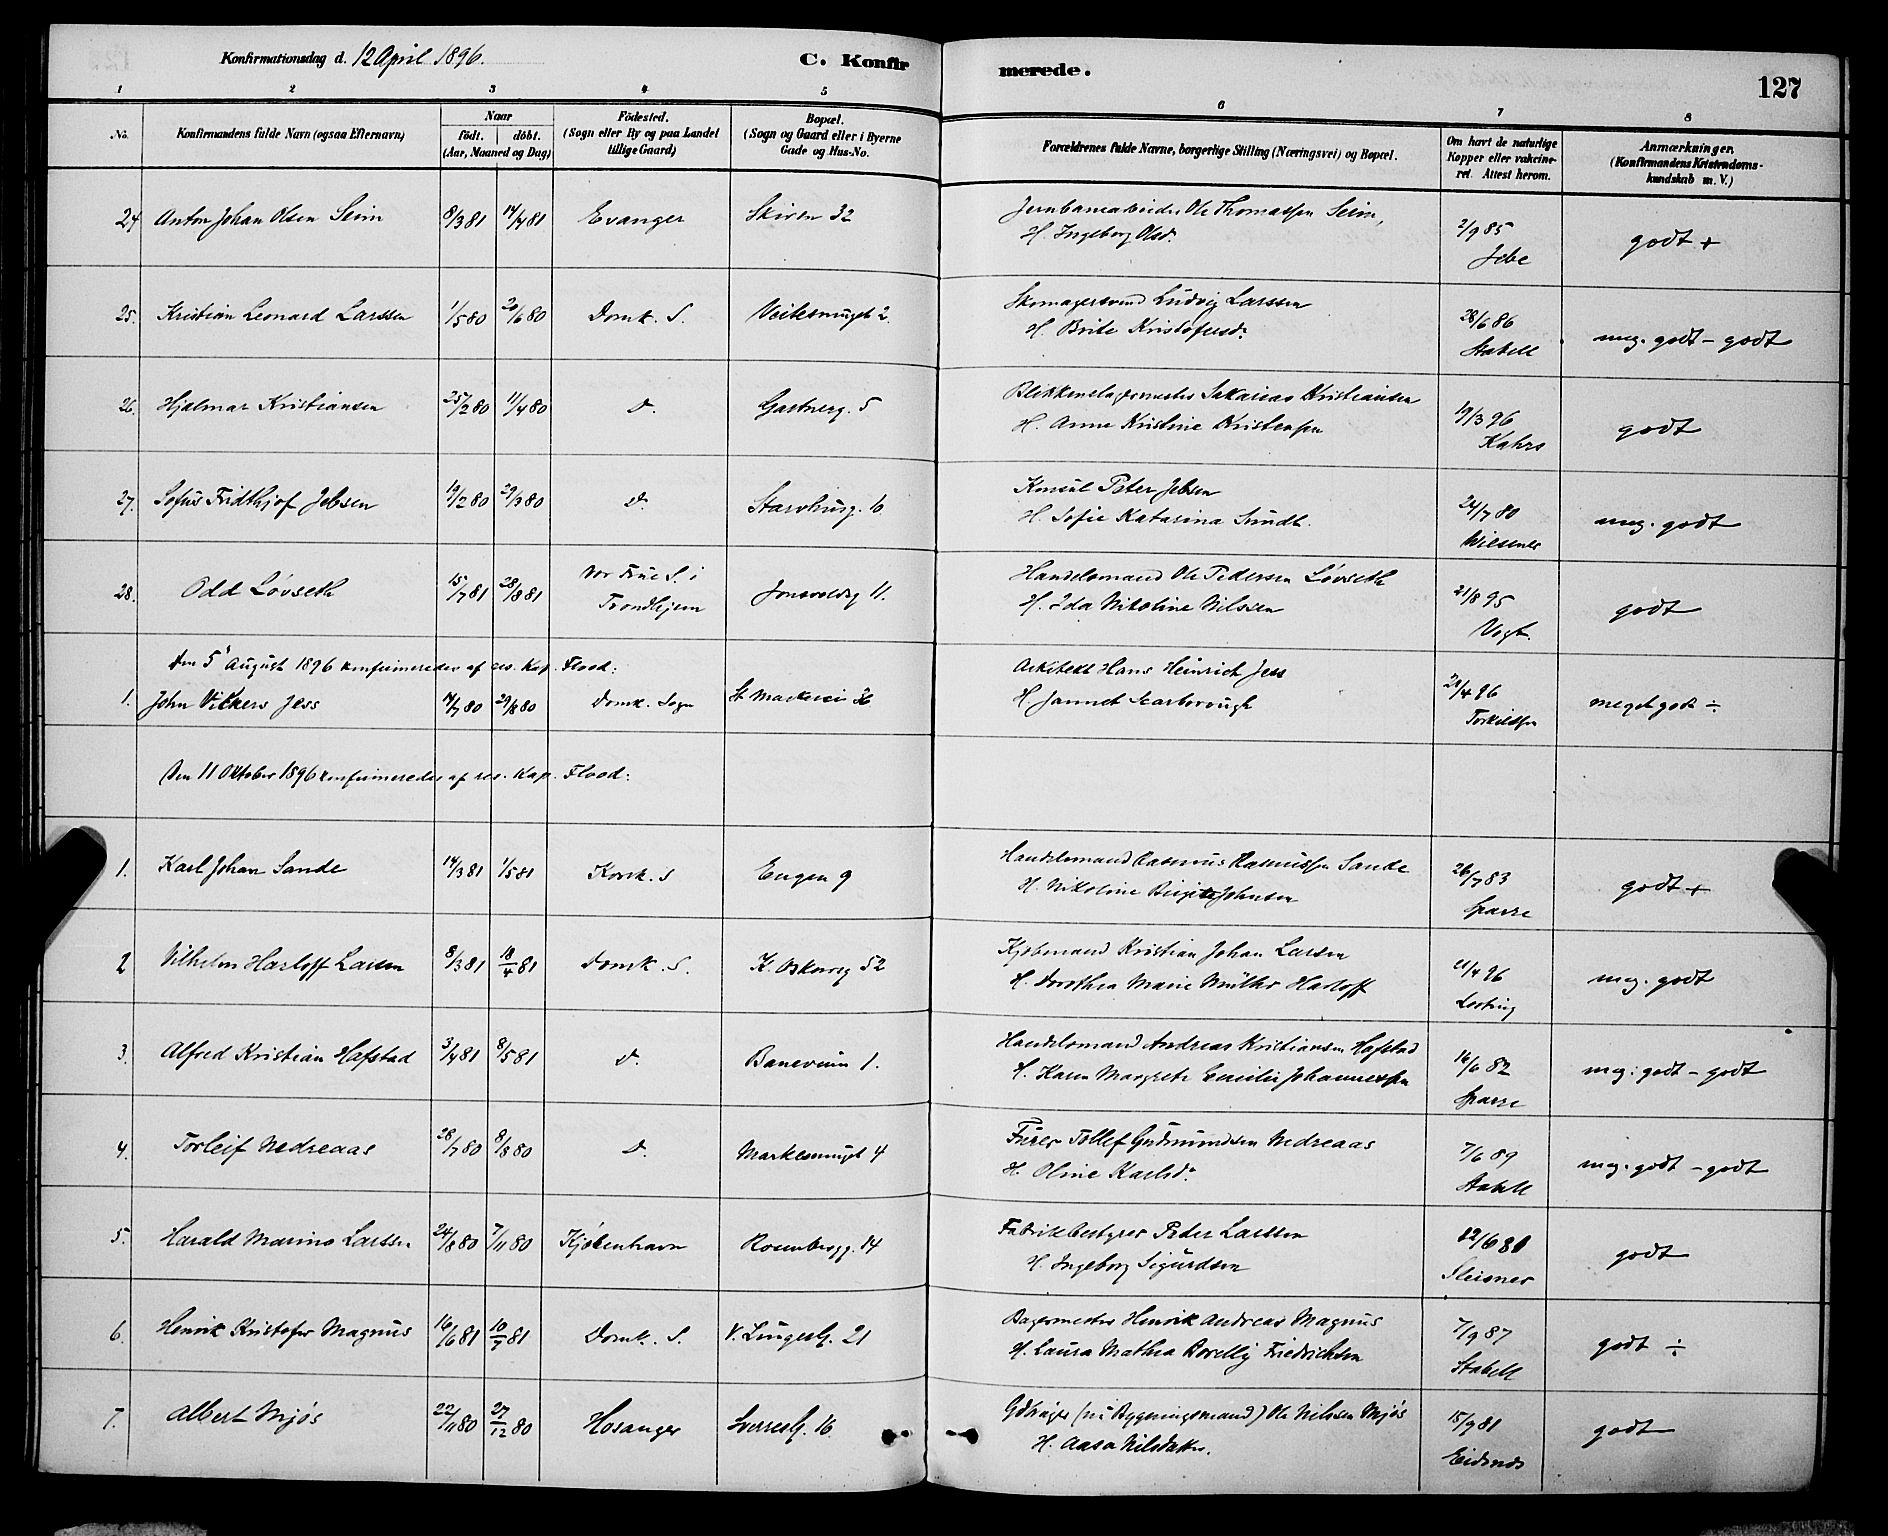 Konfirmationsdag d. 12 April 1896.
C. Konfirmerede.
127
1 2 3 4 5 6 7 8
No.
Konfirmandens fulde Navn (ogsaa Efternavn)
Naar
födt. döbt.
(Aar, Maaned og Dag)
Födested.
(Sogn eller By og paa Landet
tillige Gaard)
Bopæl.
(Sogn og Gaard eller i Byerne
Gade og Hus-No.
Forældrenes fulde Navne, borgerlige Stilling (Næringsvei) og Bopæl.
Om havt de naturlige
Kopper eller vakcine-
ret. Attest herom.
Anmærkninger.
(Konfirmandens Kristendoms-
kundskab m. V.)
24 Anton Johan Olsen Seim 8/3 81 14/4 81 Evanger Skiven 32
Jernbanearbeider Ole Thomassen Seim,
H. Ingeborg Olsd.
2/9 85
Jebe
godt +
25. Kristian Leonard Larssen 1/5 80 20/6 80 Domk. S. Veitesmuget 2.
Skomagersvend Ludvig Larssen
H. Brite Kristofersd.
28/6 86
Stabell
meg. godt - godt
26. Hjalmar Kristiansen 25/2 80 11/4 80 d. Gartnerg. 5
Blikkenslagermester Sakarias Kristiansen
H. Anne Kristine Kristensen
19/3 96
Kahrs
godt
27. Sofus Fridthjof Jebsen 19/2 80 29/3 80 d. Starvhusg. 6
Konsul Peter Jebsen
H. Sofie Katarina Sundt.
24/7 80
Wiesener
meg. godt
28. Odd Lövseth 15/7 81 28/8 81 Vor Frue S. i
Trondhjem
Jonsvoldsg 11.
Handelsmand Ole Pedersen Lövseth
H. Ida Nikoline Nilssen
21/8 95
Vogt.
godt
Den 5 August 1896 konfirmeredes af res. Kap. Flood:
1. John Vickers Jess 4/7 80 29/8 80 Domk. Sogn St. Markevei 36
Arkitekt Hans Heinrich Jess
H. Jannet Scarborough
20/4 96
Torkildsen
meget godt ÷
Den 11 Oktober 1896 konfirmeredes af res. Kap. Flood:
1. Karl Johan Sande 14/3 81 1/5 81 Korsk. S Engen 9
Handelsmand Rasmus Rasmussen Sande
H. Nikoline Birgitte Johnsen
26/7 83
Sparre
godt +
2 Vilhelm Harloff Larsen 8/3 81 18/4 81 Domk. S. K. Oskarsg 52
Kjöbmand Kristian Johan Larsen
H. Dorothea Marie Müller Harloff
21/4 96
meg. godt
3. Alfred Kristian Hafstad 3/4 81 8/5 81 d. Baneveien 1.
Handelsmand Andreas Kristiansen Hafstad
H. Karen Margrete Cecilie Johannessen
16/6 82
Sparre
meg. godt - godt
4. Torleif Nedreaas 28/7 80 8/8 80 d. Markesmuget 4
Furer Tollef Gudmundsen Nedreaas
H. Oline Karlsd.
7/6 89
Stabell
meg. godt - godt
5. Harald Marino Larssen 24/8 80 7/11 80 Kjöbenhavn Rosenbergg. 14
Fabrikbestyrer Peder Larssen
H. Ingeborg Sigurdsen
12/6 81
Sleisner
godt
6. Henrik Kristofer Magnus 16/6 81 10/7 81 Domk. S. V. Lungeg. 21
Bagermester Henrik Andreas Magnus
H. Laura Mathea Borelly Friedrichsen
7/9 87
Stabell
godt ÷
7. Albert Mjös 22/11 80 27/12 80 Hosanger Sverresg. 16
Gdbruger (nu Bygningsmand) Ole Nilssen Mjös
H. Aasa Nilsdatter.
15/9 81
Eidsnes
godt